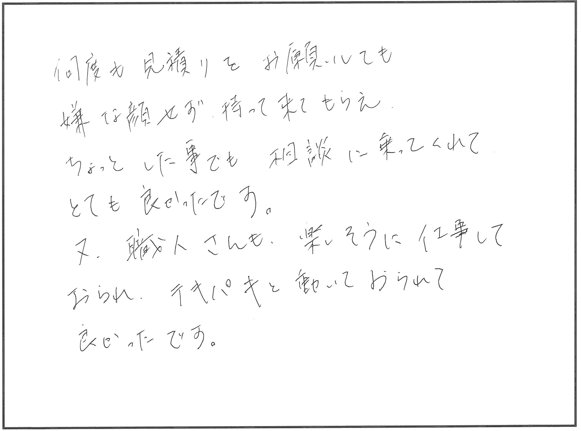 何度も見積りをお願いしても
嫌な顔せず、持って来てもらえ、
ちょっとした事でも相談に乗ってくれて
とても良かったです。
又、職人さんも、楽しそうに仕事して
おられ、テキパキと動いておられて
良かったです。